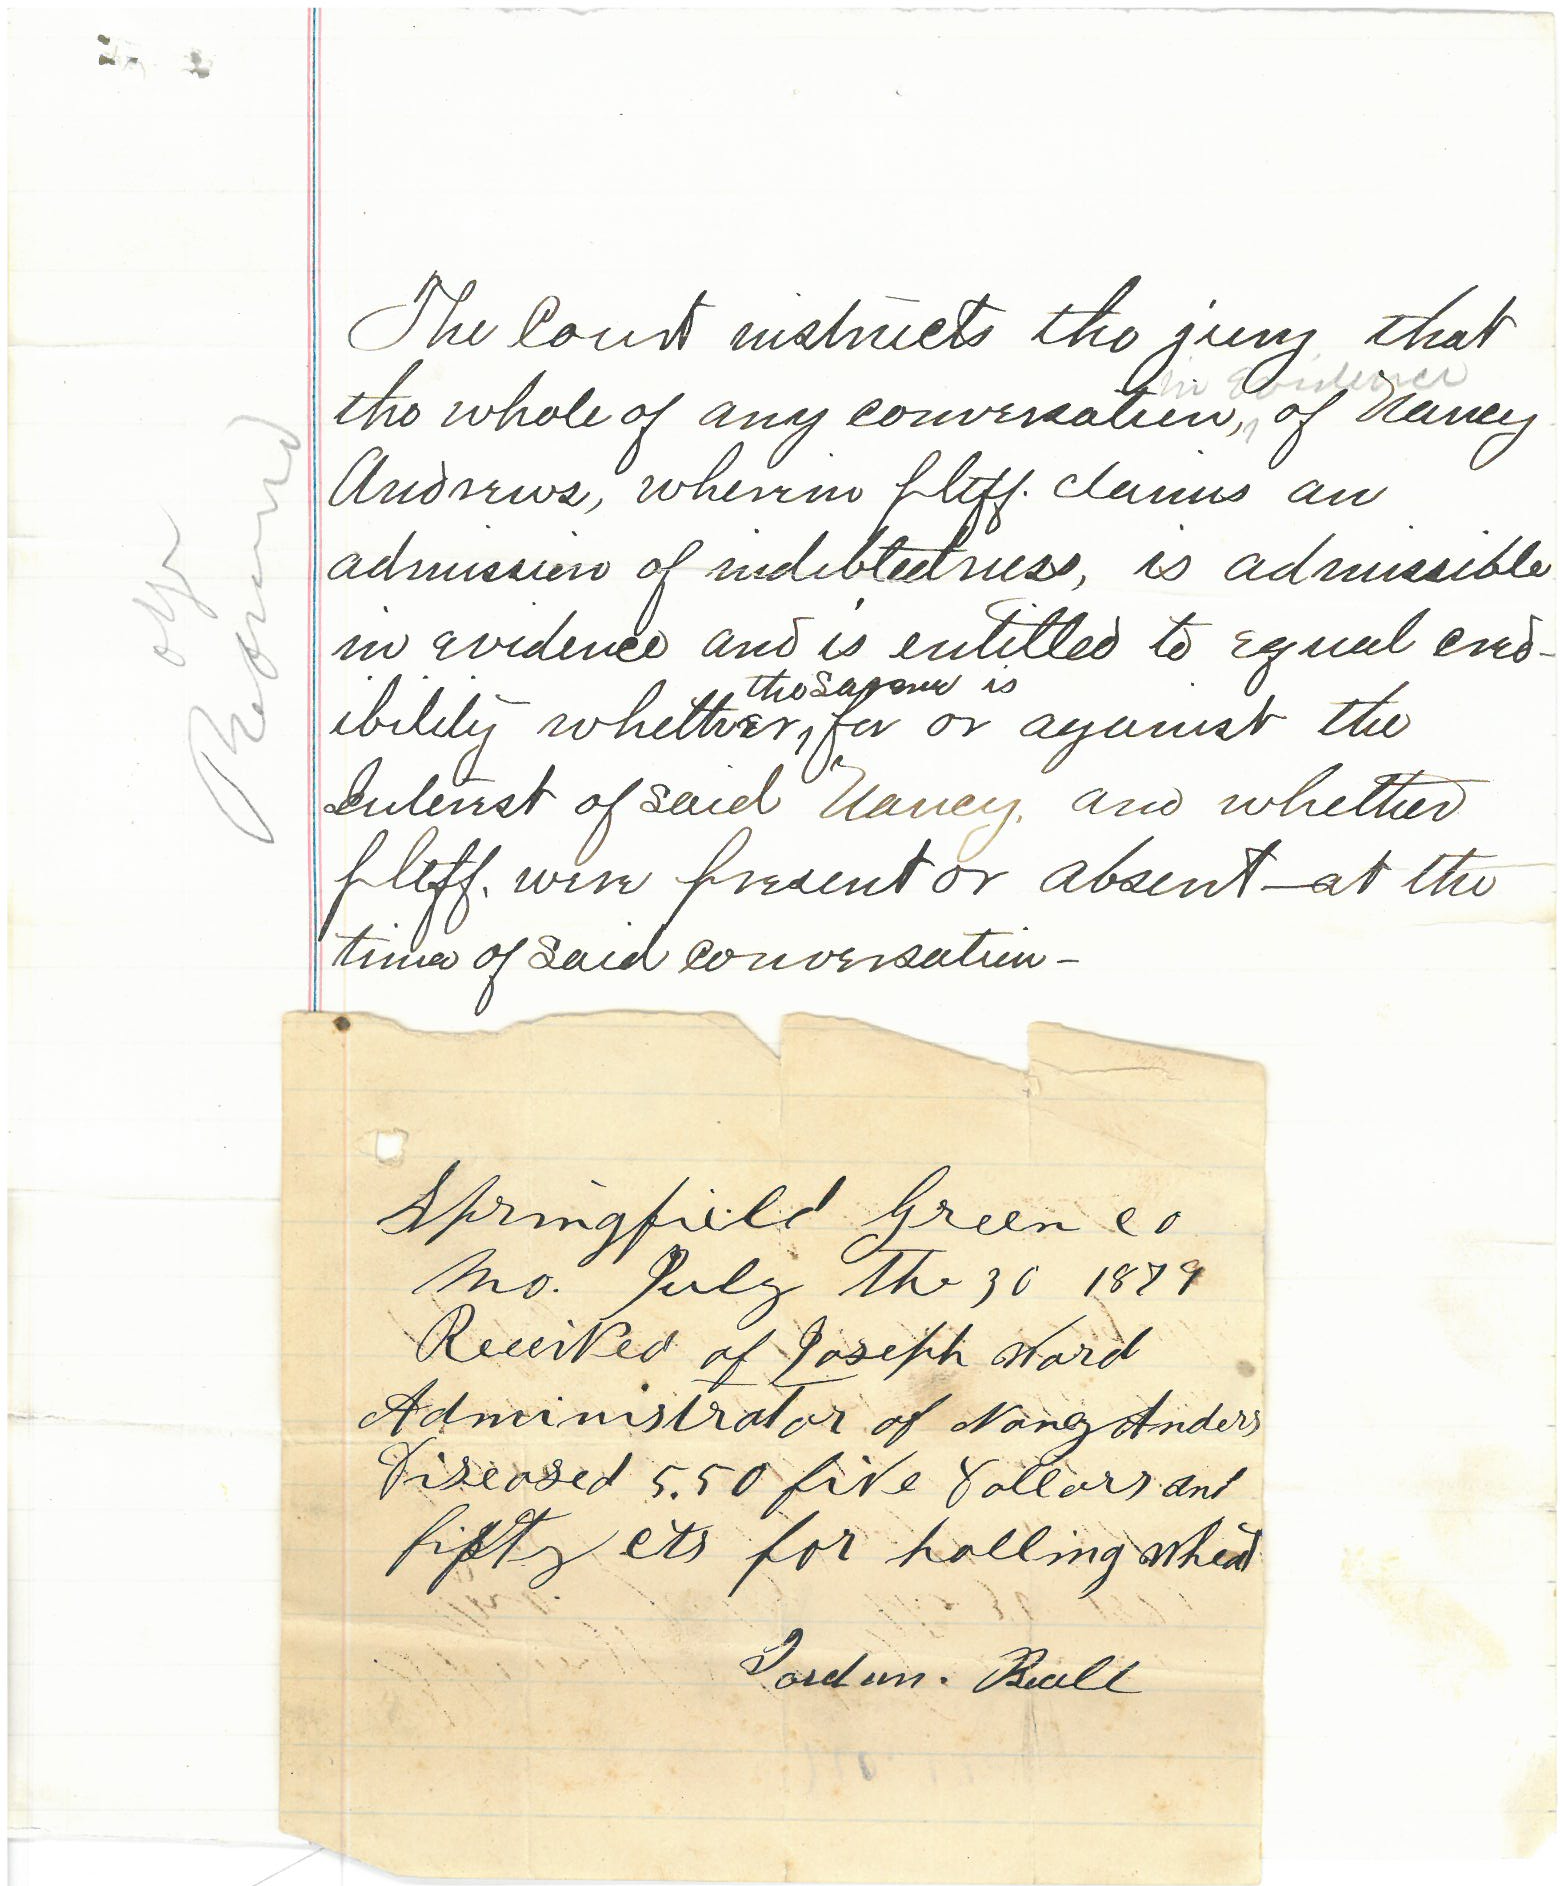 The Court instructs the jury that
in evidence
the whole of any conversation, of Nancy
Andrews, wherein pltff. claims an
admission of indebtedness, is admissible
in evidence and is entitled to equal cred-
the same is
ibility whether, for or against the
Interest of said Nancy, and whether
pltff. were present or absent at the
time of said conversation -
Springfield Green co
Mo. July the 30 1879
Received of Joseph Ward
Administrator of Nancy Anders
Diseased 5.50 five Dollars and
fifty cts for holling wheat
Jordun. Beall